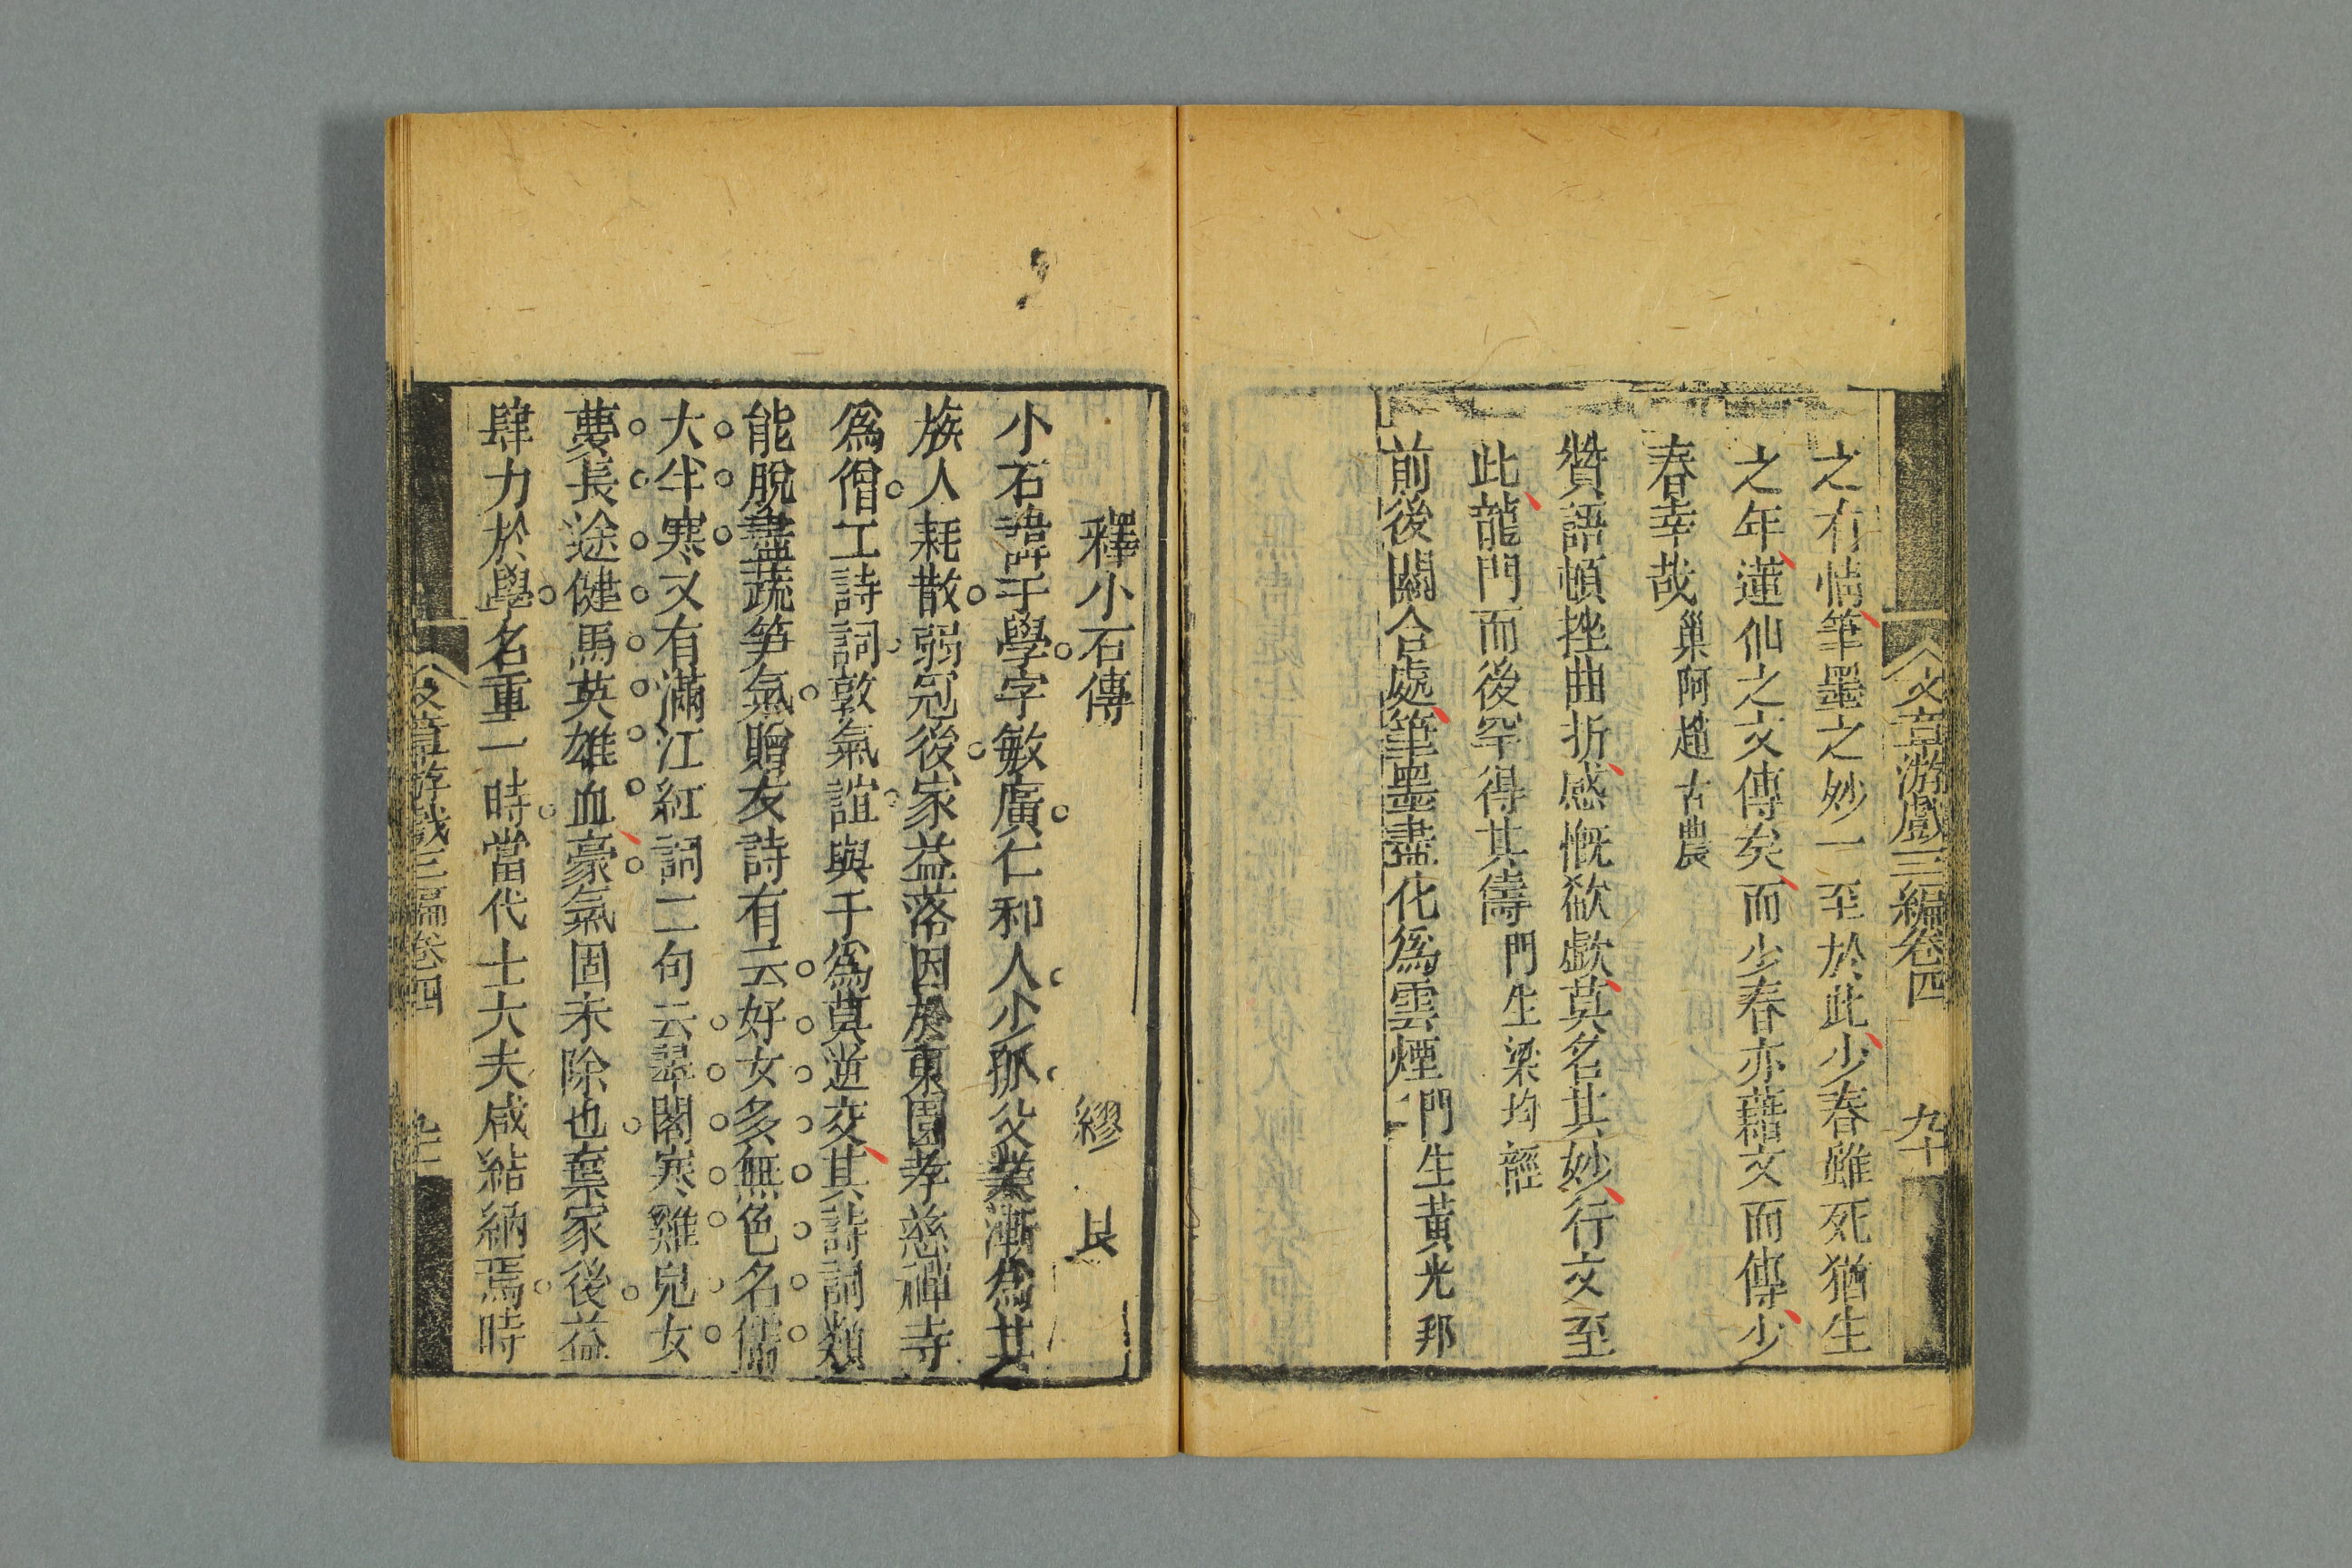 文章游戲三編卷四 九十
之有情筆墨之妙一至於此少春雖死猶生
之年蓮仙之文傳矣而少春亦藉文而傳少
春幸哉 巢阿趙古農
贊語頓挫曲折感慨欲歔莫名其妙行文至
此龍門而後罕得其儔 門生梁均 經
前後關合處筆墨盡化爲雲煙 門生黃光邦
釋小石傳 繆艮
小石諱于學字敏廣仁和人少孤父業漸爲其
族人耗散弱冠後家益落因於東園孝慈禪寺
爲僧工詩詞敦氣誼與予爲莫逆交其詩詞類
能脫盡蔬笋氣贈友詩有云好女多無色名儒
大半寒又有滿江紅詞二句云翠閣寒雞兒女
夢長途健馬英雄血豪氣固未除也棄家後益
肆力於學名重一時當代士大夫咸結納焉時
文章游戲三編卷四